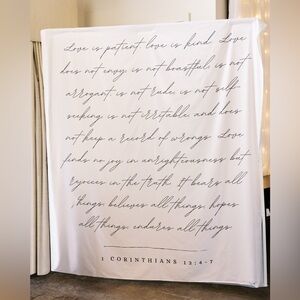 Love is patient, love is kind. Love
does not envy, is not boastful, is not
arrogant, is not rude, is not self-
seeking, is not irritable, and does
not keep a record of wrongs. Love
finds no joy in unrighteousness but
rejoices in the truth. It bears all
things, believes all things, hopes
all things, endures all things.
1 CORINTHIANS 13:4-7